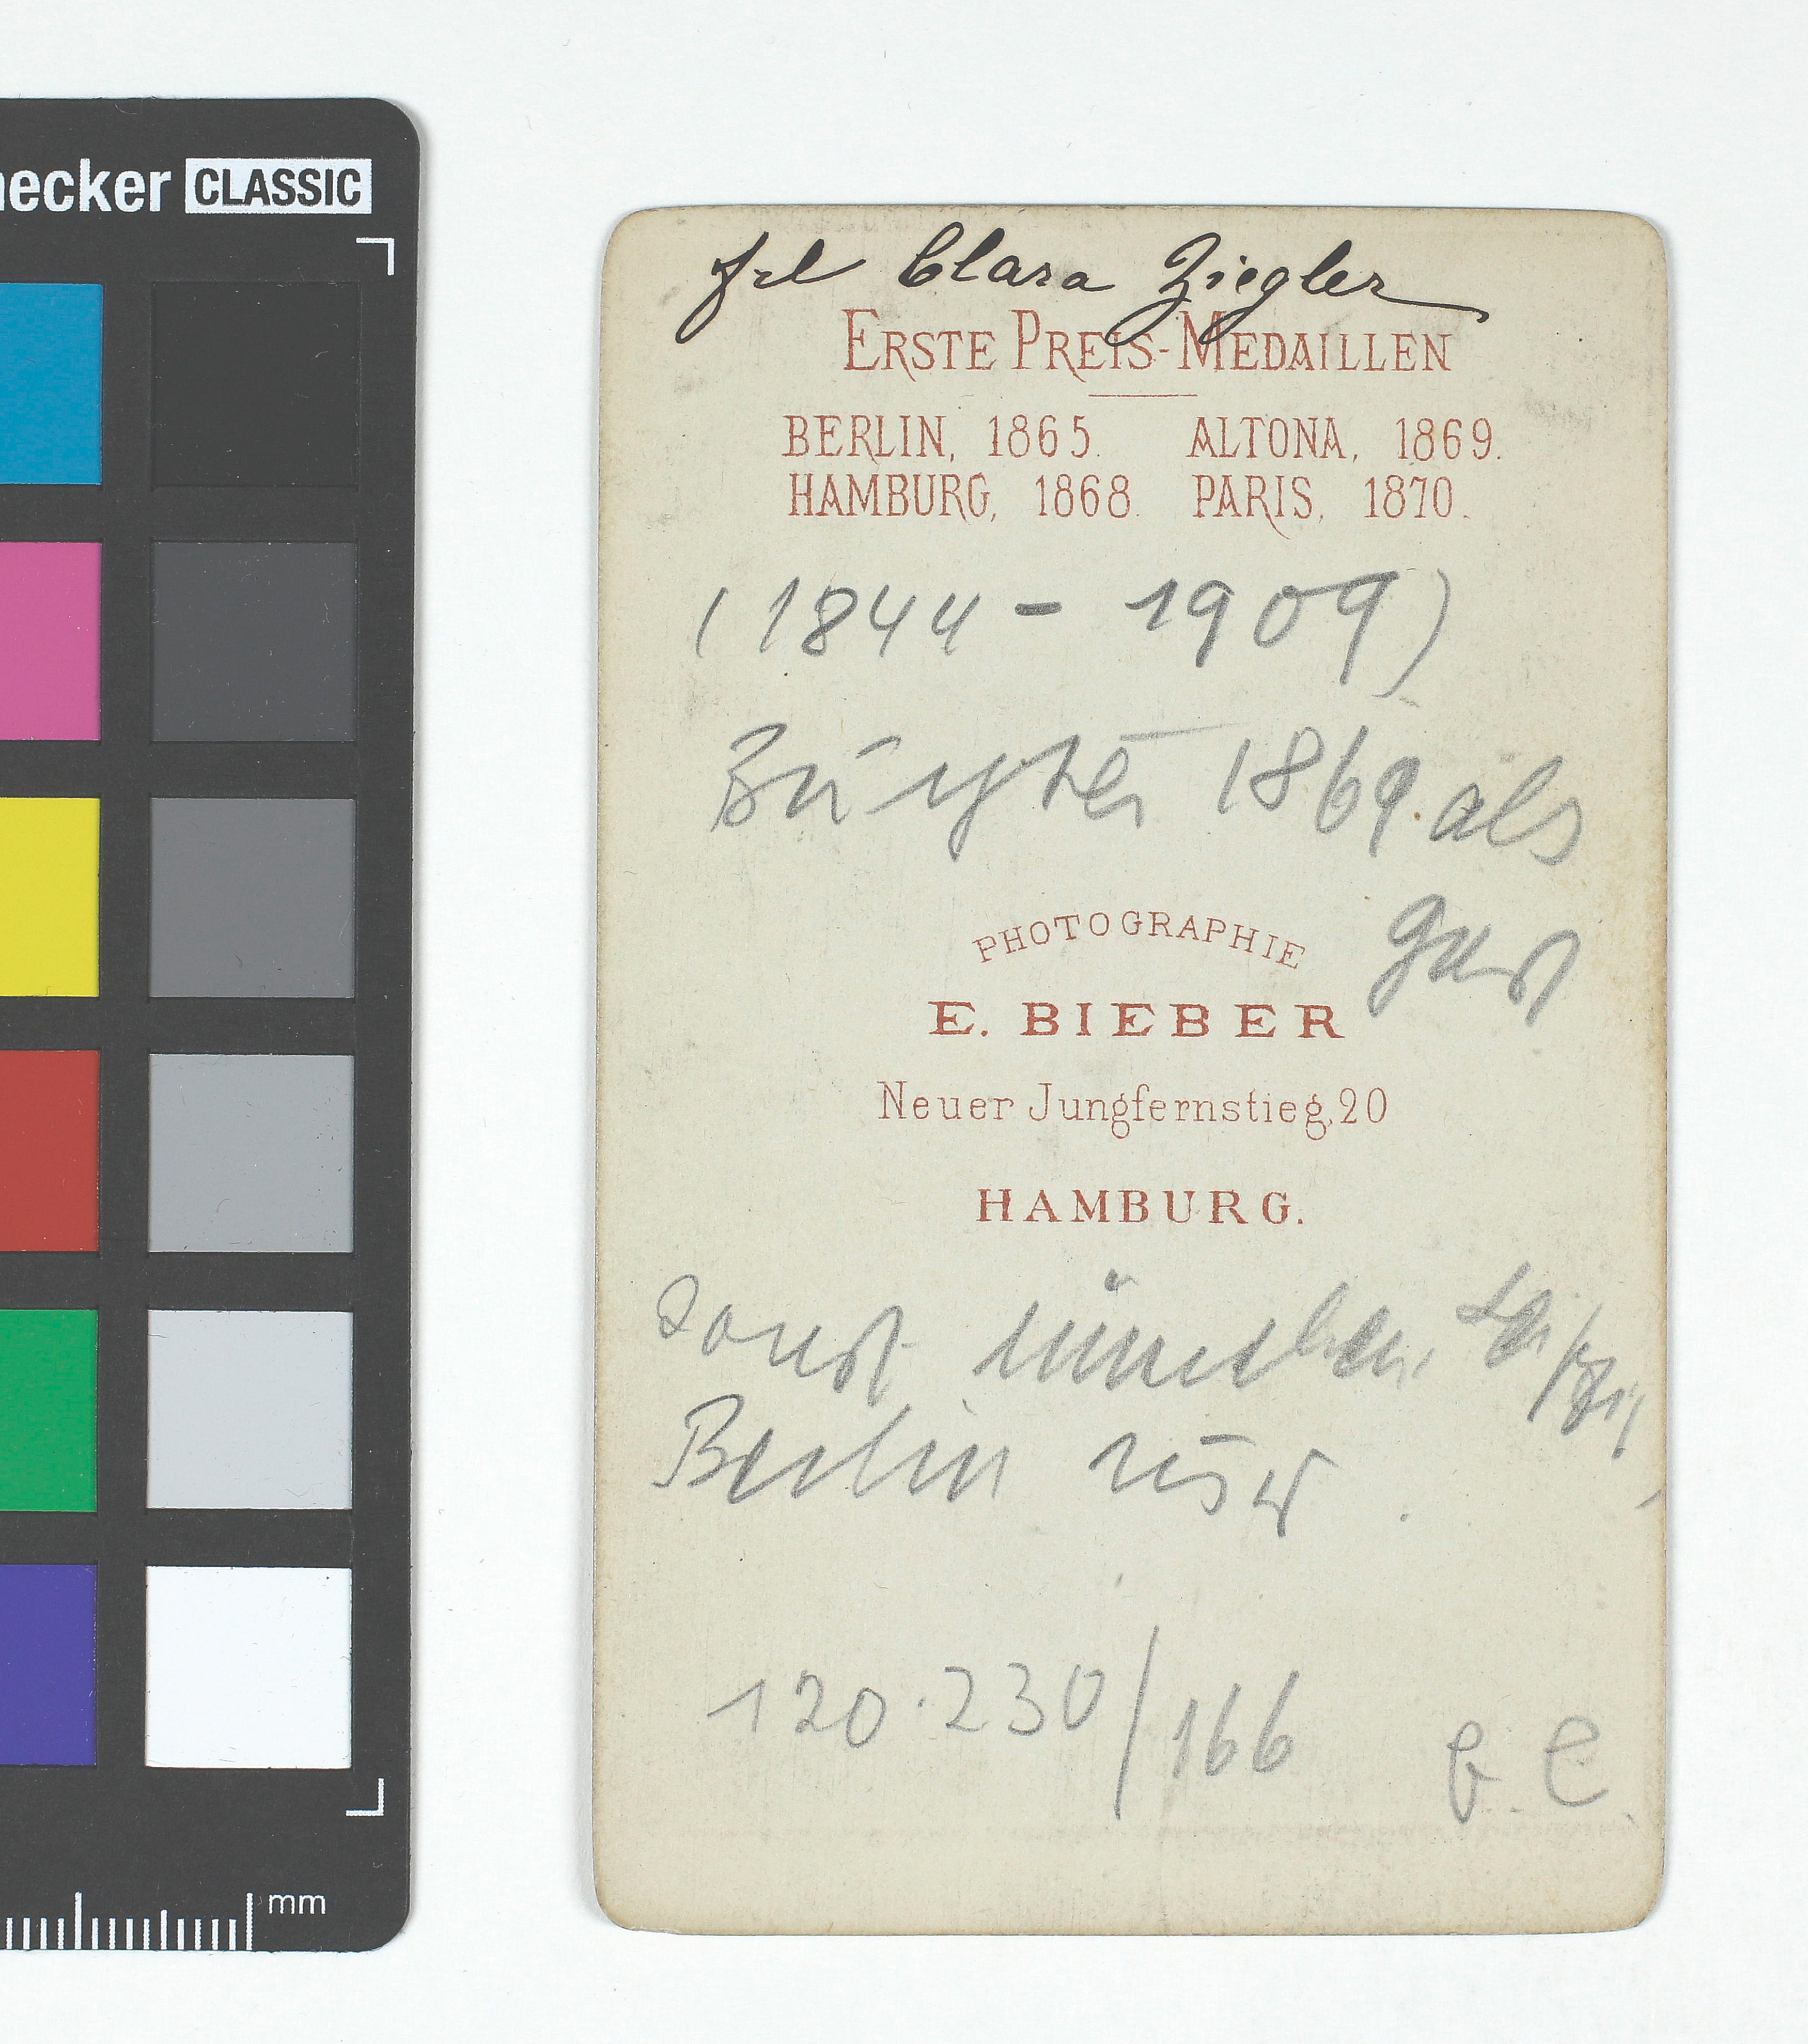 necker CLASSIC
frl Clara Ziegler
ERSTE PREIS-MEDAILLEN
BERLIN, 1865. ALTONA, 1869.
HAMBURG, 1868. PARIS, 1870.
(1844 - 1909)
1869 als
Gast
PHOTOGRAPHIE
E. BIEBER
Neuer Jungfernstieg, 20
HAMBURG.
sonst München, Leipzig,
Berlin usw.
120.230/166
mm